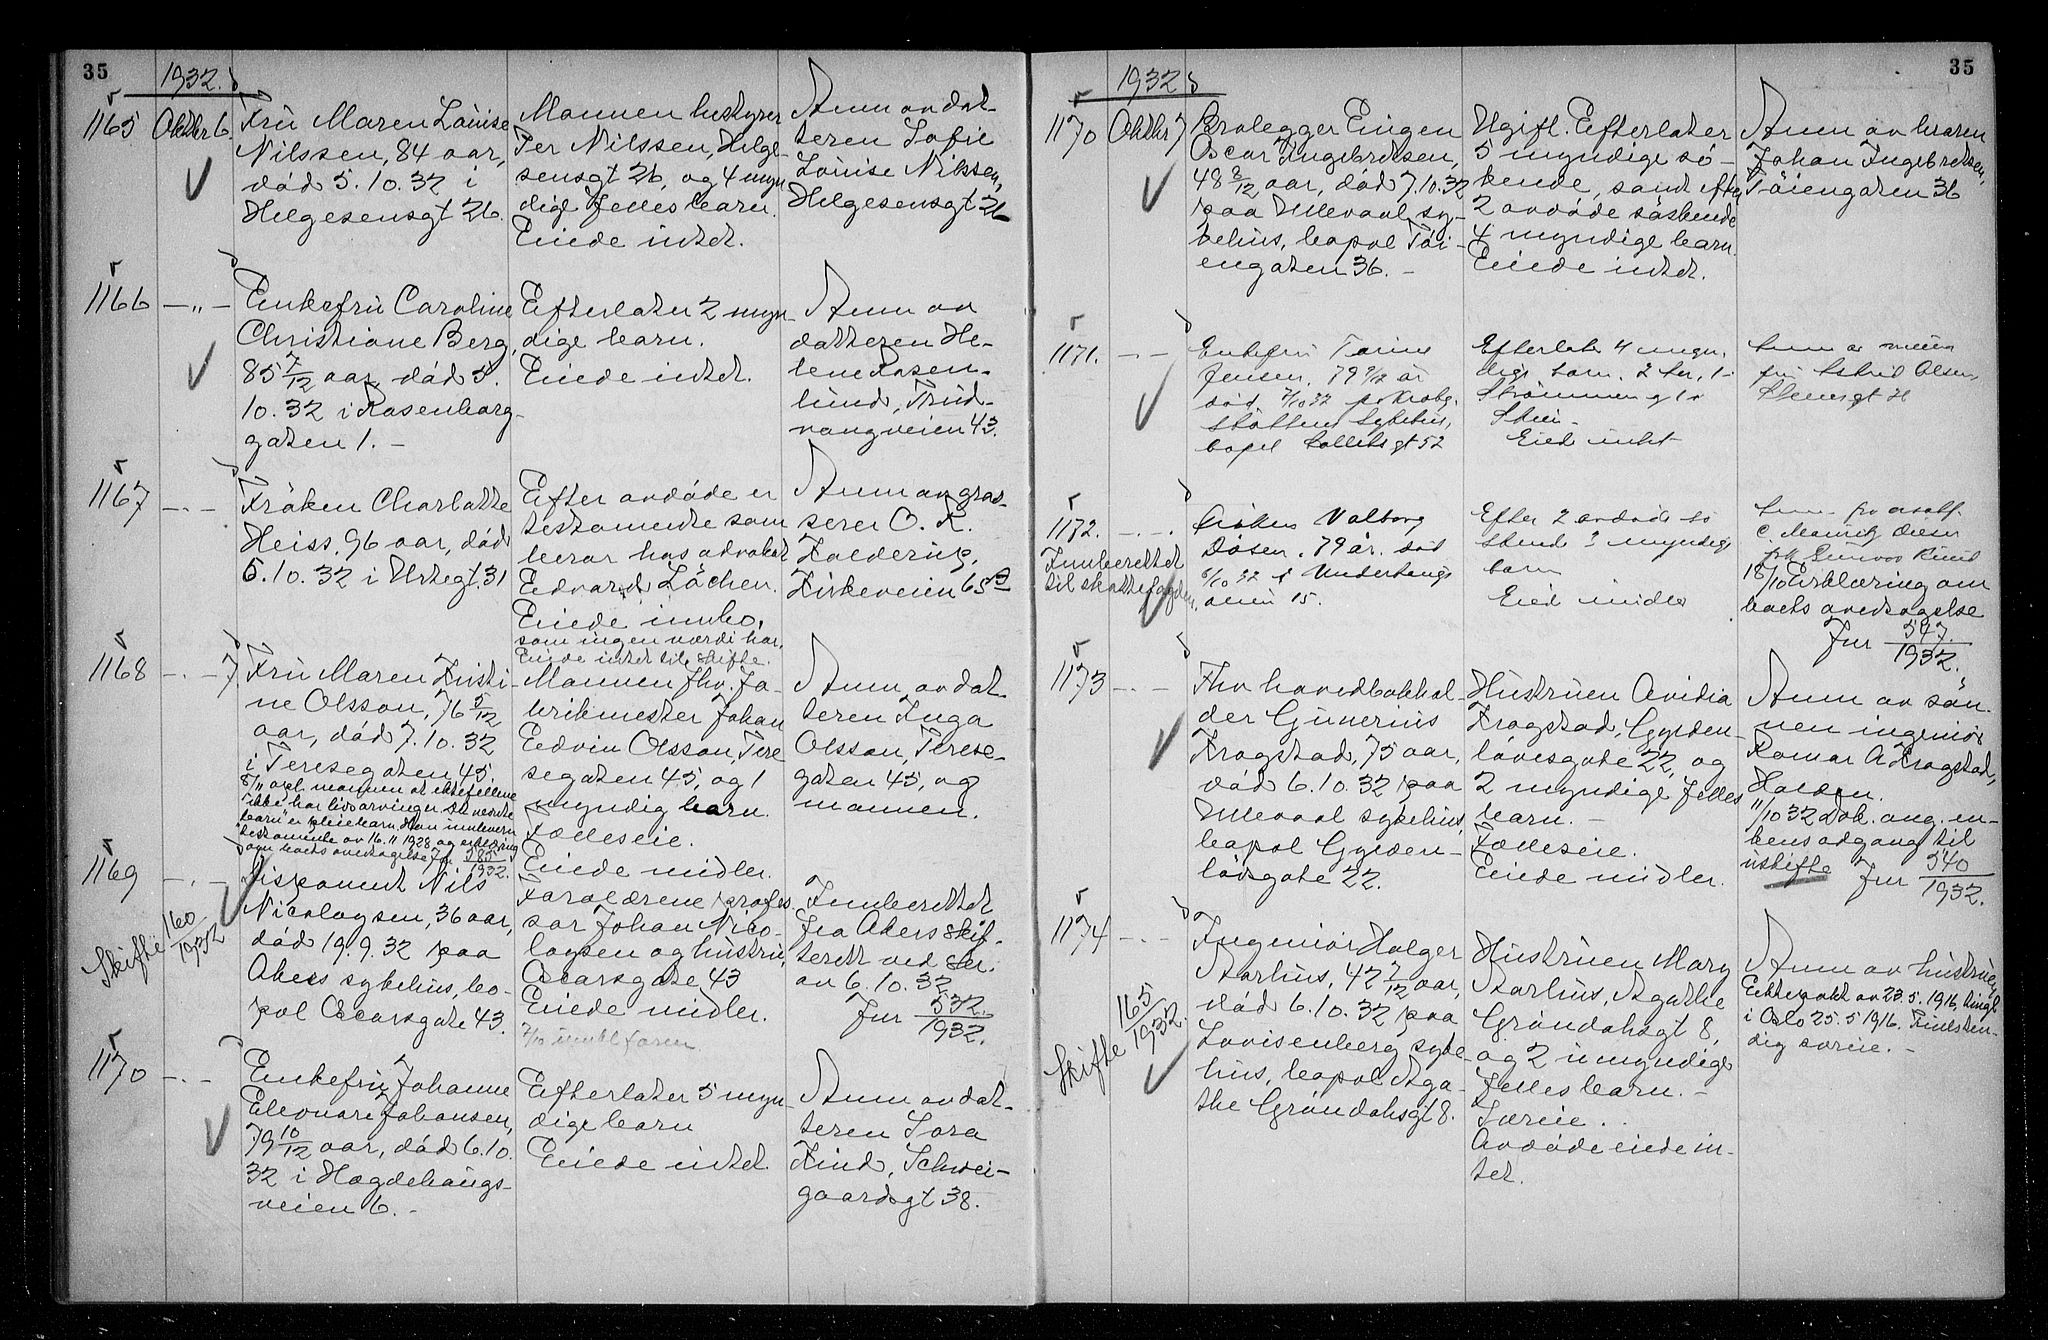 35
1932.
1165
Oktbr 6.
Fru Maren Louise
Nilssen, 84 aar,
död 5.10.32 i
Helgesensgt 26.
Mannen
Per Nilssen, Helge-
sensgt 26, og 4 myn-
dige felles barn.
Eiede intet.
Anm av dat-
teren Sofie
Louise Nilssen,
Helgesensgt 26
1166
— „ —
Enkefru Caroline
Christiane Berg,
85 7/12 aar, död 5.
10.32 i Rosenborg-
gaten 1. —
Efterlater 2 myn-
dige barn.
Eiede intet.
Anm av
datteren He-
lene Rosen-
lund, Trud-
vangveien 43.
1167
— . —
Fröken Charlotte
Heiss, 96 aar, död
5.10.32 i Urtegt. 31
Efter avdöde er
testamente som
beror hos advokat
Edvard Löchen.
Eiede innbo,
som ingen værdi har.
Eiede intet til skifte.
Anm av gros-
serer O. K.
Kirkeveien 65
1168
— . — 7
Fru Maren Kristi-
ne Olsson, 76 5/12
aar, död 7.10.32
i Teresegaten 45.
8/11 opl. mannen at ektefellene
ikke har livsarvinger. Det nevnte
barn er pleiebarn. Han innleverer
testamente av 16.11.1928 og erklæring
om boets overtagelse Jnr 585/1932.
Mannen fhv. fa-
brikmester Johan
Edvin Olsson, Tere-
segaten 45, og 1
myndig barn.
Fælleseie.
Eiede midler.
Anm av dat-
teren Inga
Olsson, Terese-
gaten 45, og
mannen.
1169
— . —
Skifte 160/1932
Disponent Nils
Nicolaysen, 36 aar,
död 19.9.32 paa
Akers sykehus, bo-
pæl Oscarsgate 43.
Forældrene profes-
sor Johan Nico-
laysen og hustru,
Oscarsgate 43
Eiede midler.
7/10 faren
Innberettet
fra Akers skif-
terett ved skr.
av 6.10.32
Jnr 532/1932.
1170
— . —
Enkefru Johanne
Eleonore Johansen,
79 10/12 aar, död 6.10.
32 i Hægdehaugs-
veien 6. —
Efterlater 5 myn-
dige barn
Eiede intet.
Anm av dat-
teren Sora
Lind, Schwei-
gaardsgt 38.
35
1932
1170
Oktbr 7
Brolegger Eugen
Oscar Ingebretsen,
48 8/12 aar, död 7.10.32
paa Ullevaal sy-
kehus, bopæl Töi-
engaten 36. —
Ugift. Efterlater
5 myndige sö-
kende, samt efter
2 avdöde söskende
4 myndige barn.
Eiede intet.
Anm av broren
Johan Ingebretsen,
Töiengaten 36
1171.
— —
Enkefru Torine
Jensen, 79 9/12 år
död 7/10 32 på Krohg-
stöttens sykehus,
bopel Colletts gt 52
Efterlater 4 myn-
dige barn. 2 her, 1 i
Strömmen og 1 i
Eied intet
Anm av
fru Astrid Olsen,
1172.
— . —
Innberettet
til skattefogden.
Fröken Valborg
Dösen, 79 år, död
6/10 32 i Underhaugs
veien 15.
Efter 2 avdöde sö-
skende 7 myndige
barn
Eied midler
Anm. fra advokatf.
C.
18/10 Erklæring om
boets overtagelse
Jnr 547/1932.
1173
— . —
Fhv hovedbokhol-
der Gunerius
Krogstad, 75 aar,
död 6.10.32 paa
Ullevaal sykehus,
bopæl Gylden-
lövsgate 22.
Hustruen Ovidia
Krogstad, Gylden-
lövesgate 22, og
2 myndige felles
barn. —
Fælleseie.
Eiede midler.
Anm av sön-
nen ingeniör
Romar A Krogstad,
Halden.
11/10 32 Dok. ang. en-
kens adgang til
uskifte Jnr 540/1932.
1174
— . —
Skifte 165/1932.
Ingeniör Holger
Aarhus, 42 7/12 aar,
död 6.10.32 paa
Lovisenberg syke-
hus, bopæl Aga-
the Gröndahlsgt 8.
Hustruen Mary
Aarhus, Agathe
Gröndahlsgt 8,
og 2 umyndige
felles barn. —
Særeie.
Avdöde eiede in-
tet.
Anm av hustruen,
Ektepakt av 23.5.1916, tingl.
i Oslo 25.5.1916. Fullsten-
dig særeie. —